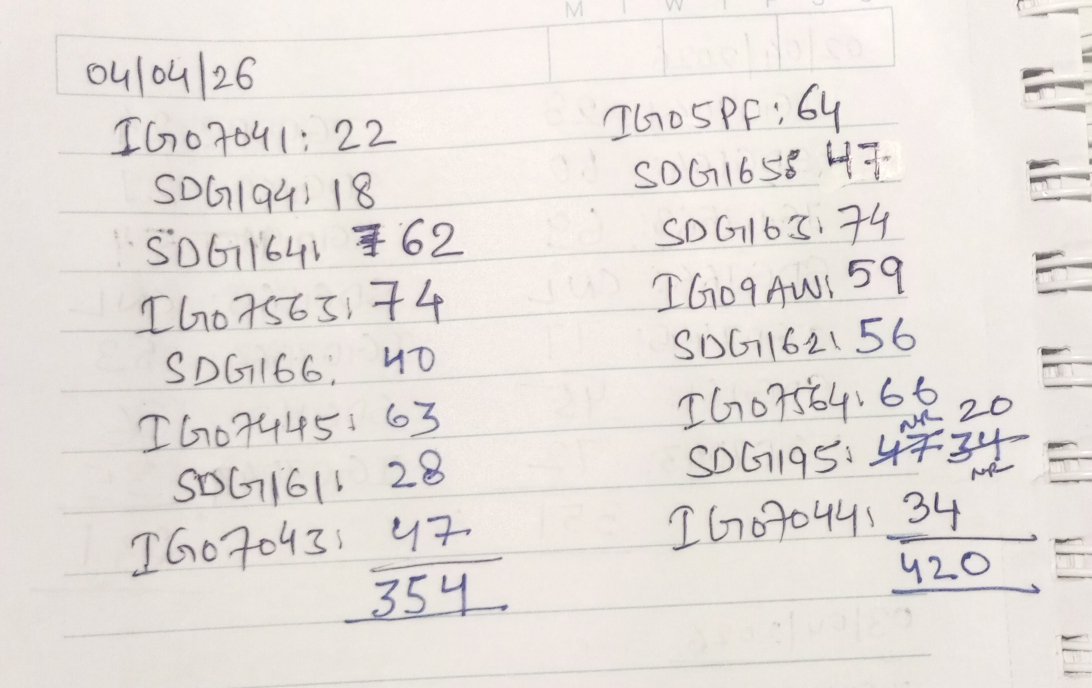 M T W T F S S
04/04/26
IGO7041: 22
SDG194: 18
SDG164: 62
IGO7563: 74
SDG166: 40
IGO7445: 63
SDG161: 28
IGO7043: 47
354
IGO5PF: 64
SDG165: 47
SDG163: 74
IGO9AW: 59
SDG162: 56
IGO7564: 66
SDG195: 47 NR 34 NR 20
IGO7044: 34
420